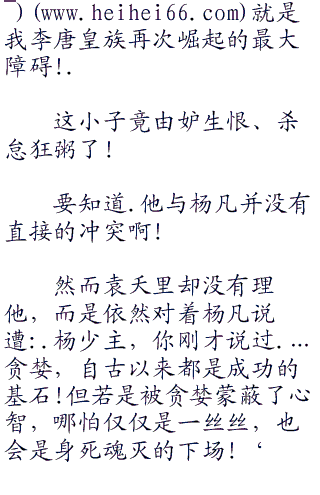 )(www.heihei66.com)就是
我李唐皇族再次崛起的最大
障碍!.
这小子竟由妒生恨、杀
怠狂粥了!
要知道.他与杨凡并没有
直接的冲突啊!
然而袁天里却没有理
他，而是依然对着杨凡说
遭:.杨少主，你刚才说过....
贪婪，自古以来都是成功的
基石!但若是被贪婪蒙蔽了心
智，哪怕仅仅是一丝丝，也
会是身死魂灭的下场!‘